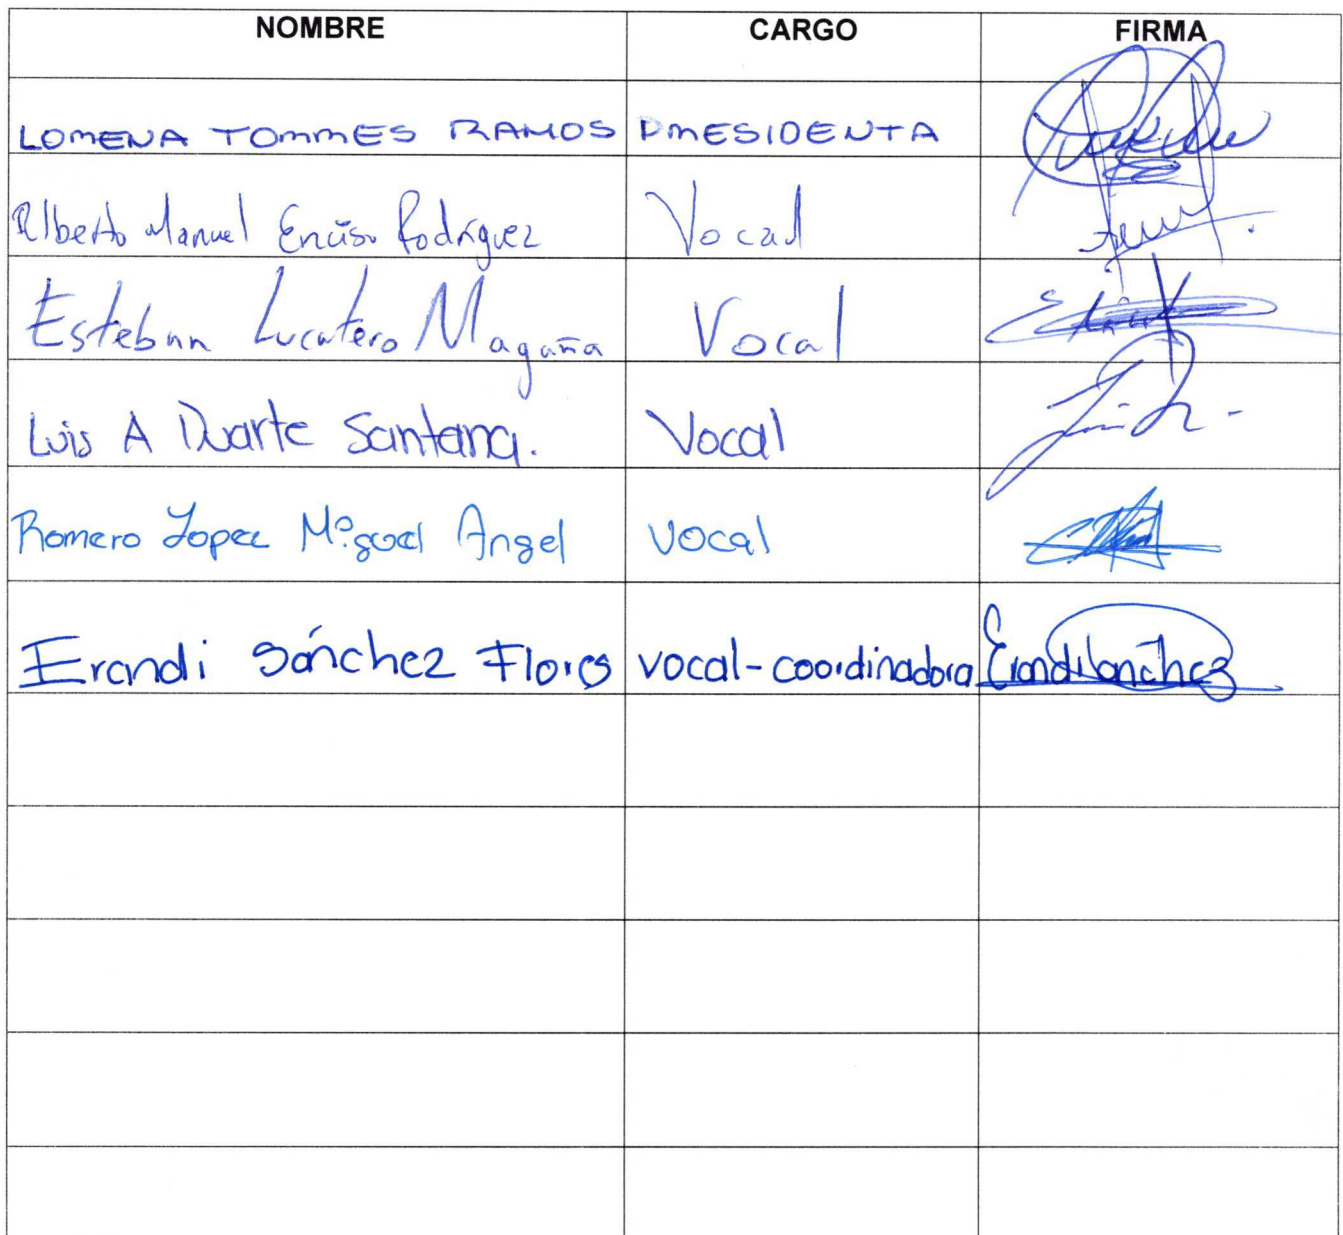 NOMBRE CARGO FIRMA
LORENA TORRES RAMOS PRESIDENTA
Alberto Manuel Enciso Rodríguez Vocal
Esteban Lucatero Magaña Vocal
Luis A Duarte Santana. Vocal
Romero Lopez Miguel Angel vocal
Erandi Sánchez Flores vocal-coordinadora Erandi Sanchez